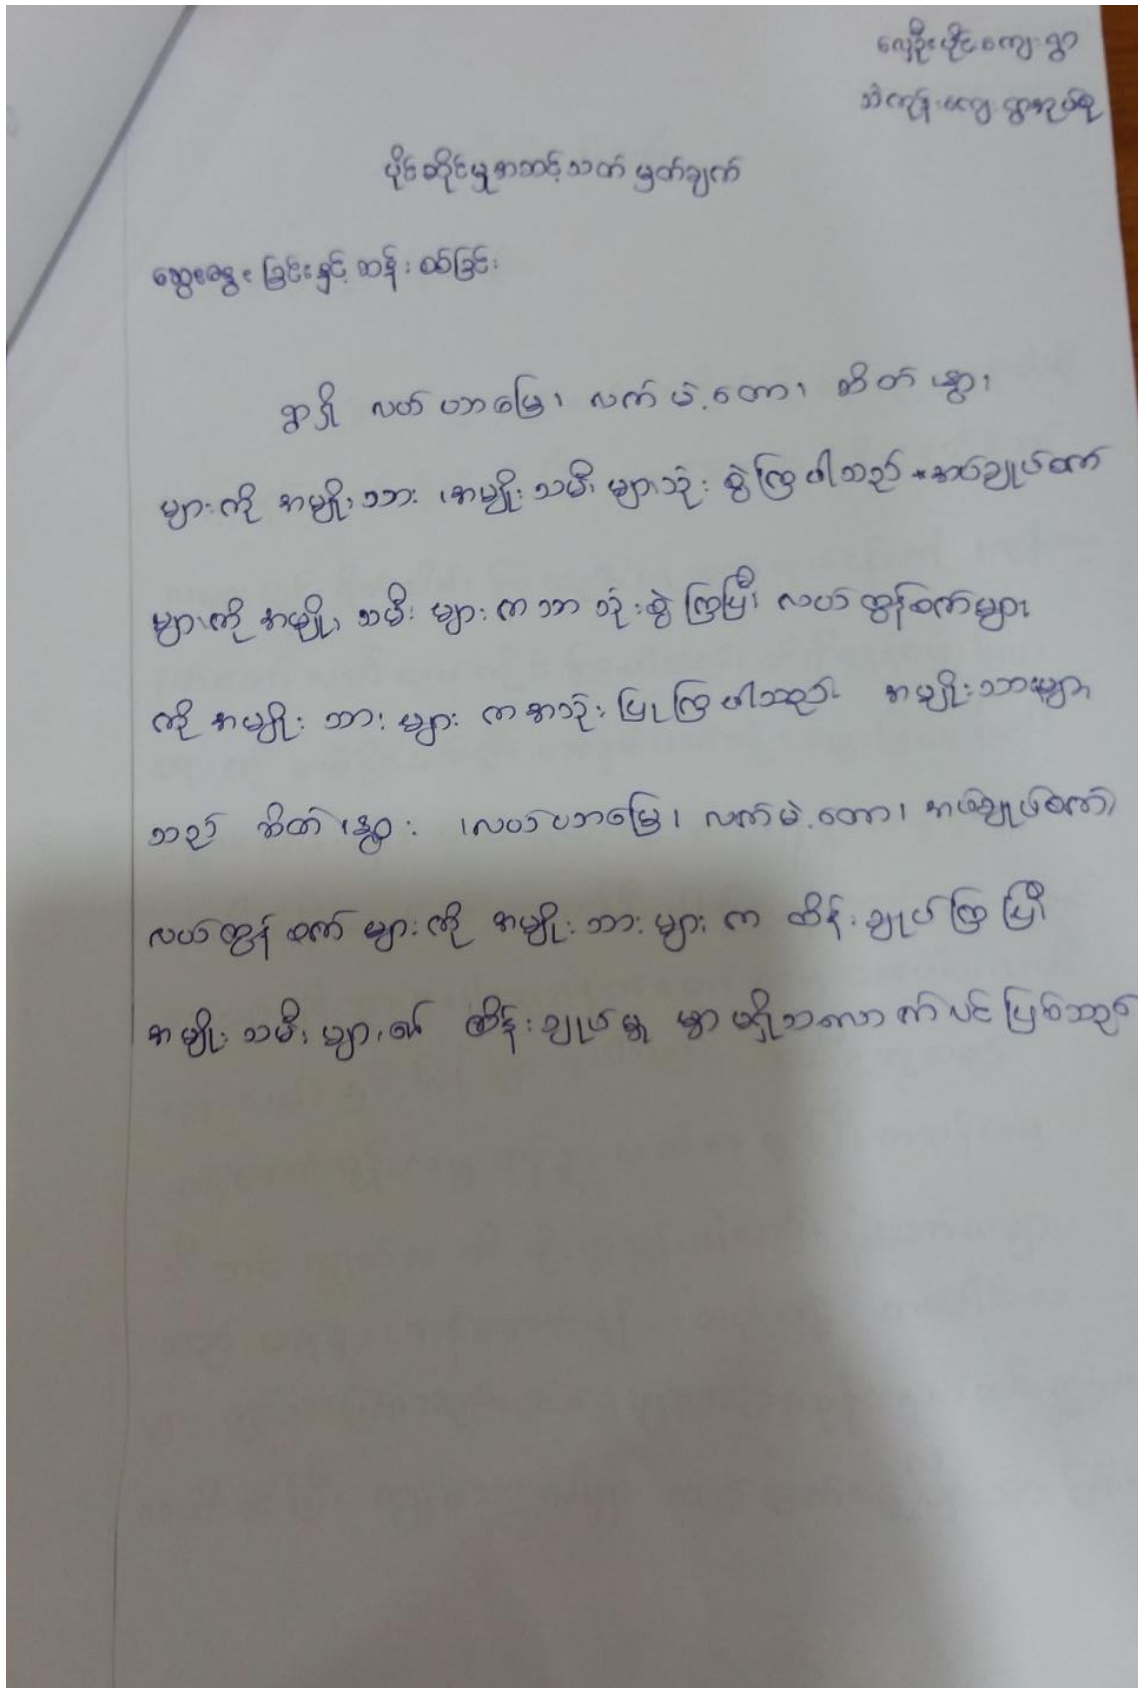 လှေဦးပိုင်ကျေးရွာ
သဲကုန်းကျေးရွာအုပ်စု
ပိုင်ဆိုင်မှုအဆင့်သတ်မှတ်ချက်
ဆွေးနွေးခြင်းနှင့်ဆန်းစစ်ခြင်း
ရွာရှိ လယ်ယာမြေ၊ လက်မဲ့တော၊ ဆိတ် ၊နွား
များကို အမျိုးသား ၊အမျိုးသမီးများသုံးစွဲကြပါသည် အပ်ချုပ်စက်
များကို အမျိုးသမီးများကသာသုံးစွဲကြပြီး လယ်ထွန်စက်များ
ကို အမျိုးသားများကအသုံးပြုကြပါသည်။ အမျိုးသားများ
သည် ဆိတ် ၊နွား ၊လယ်ယာမြေ၊ လက်မဲ့တော၊ အပ်ချုပ်စက်၊
လယ်ထွန်စက်များကို အမျိုးသားများက ထိန်းချုပ်ကြပြီး
အမျိုးသမီးများ၏ ထိန်းချုပ်မှု မှာ မရှိသလောက်ပင်ဖြစ်သည်